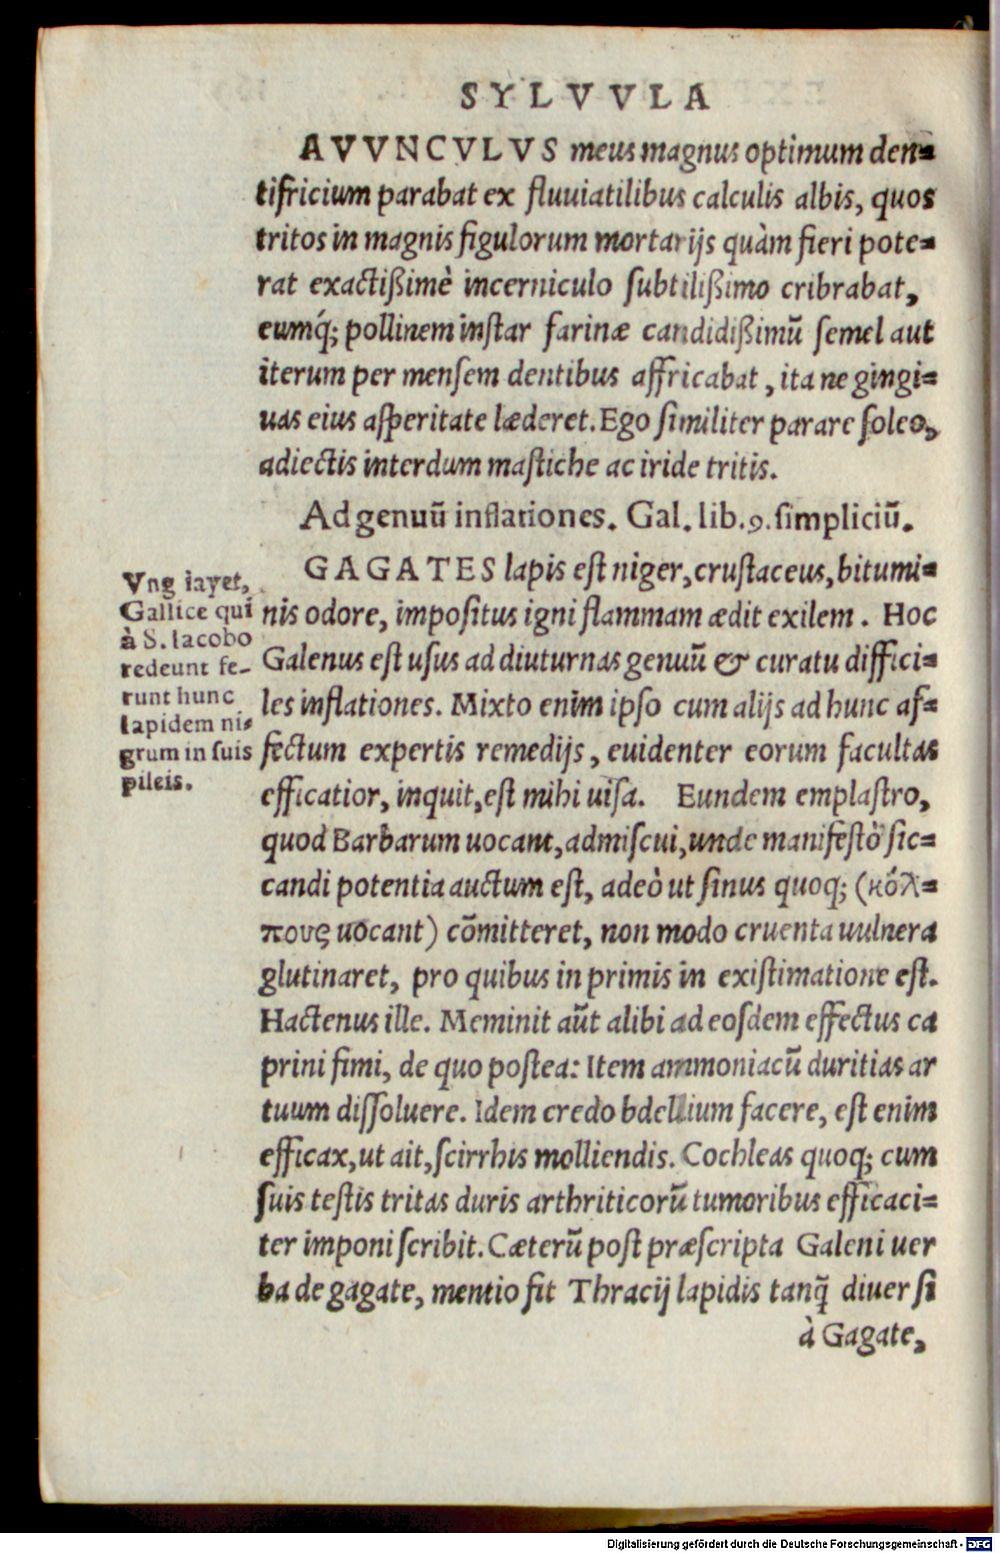 SYLVVLA
AVVNCVLVS meus magnus optimum den=
tifricium parabat ex fluuiatilibus calculis albis, quos
tritos in magnis figulorum mortarijs quàm fieri pote=
rat exactißimè incerniculo subtilißimo cribrabat,
eumq́; pollinem instar farinæ candidißimũ semel aut
iterum per mensem dentibus affricabat, ita ne gingi=
uas eius asperitate læderet. Ego similiter parare soleo,
adiectis interdum mastiche ac iride tritis.
Ad genuũ inflationes. Gal. lib. 9. simpliciũ.
GAGATES lapis est niger, crustaceus, bitumi=
nis odore, impositus igni flammam ædit exilem. Hoc
Galenus est usus ad diuturnas genuũ & curatu diffici=
les inflationes. Mixto enim ipso cum alijs ad hunc af=
fectum expertis remedijs, euidenter eorum facultas
efficatior, inquit, est mihi uisa. Eundem emplastro,
quod Barbarum uocant, admiscui, unde manifestò sic=
candi potentia auctum est, adeò ut sinus quoq; (κόλ=
πους uocant) cõmitteret, non modo cruenta uulnera
glutinaret, pro quibus in primis in existimatione est.
Hactenus ille. Meminit aũt alibi ad eosdem effectus ca
prini fimi, de quo postea: Item ammoniacũ duritias ar
tuum dissoluere. Idem credo bdellium facere, est enim
efficax, ut ait, scirrhis molliendis. Cochleas quoq; cum
suis testis tritas duris arthriticorũ tumoribus efficaci=
ter imponi scribit. Cæterũ post præscripta Galeni uer
ba de gagate, mentio fit Thracij lapidis tanq̃ diuersi
à Gagate,
Vng iayet,
Gallice qui
à S. Iacobo
redeunt fe-
runt hunc
lapidem ni=
grum in suis
pileis.
Digitalisierung gefördert durch die Deutsche Forschungsgemeinschaft - DFG